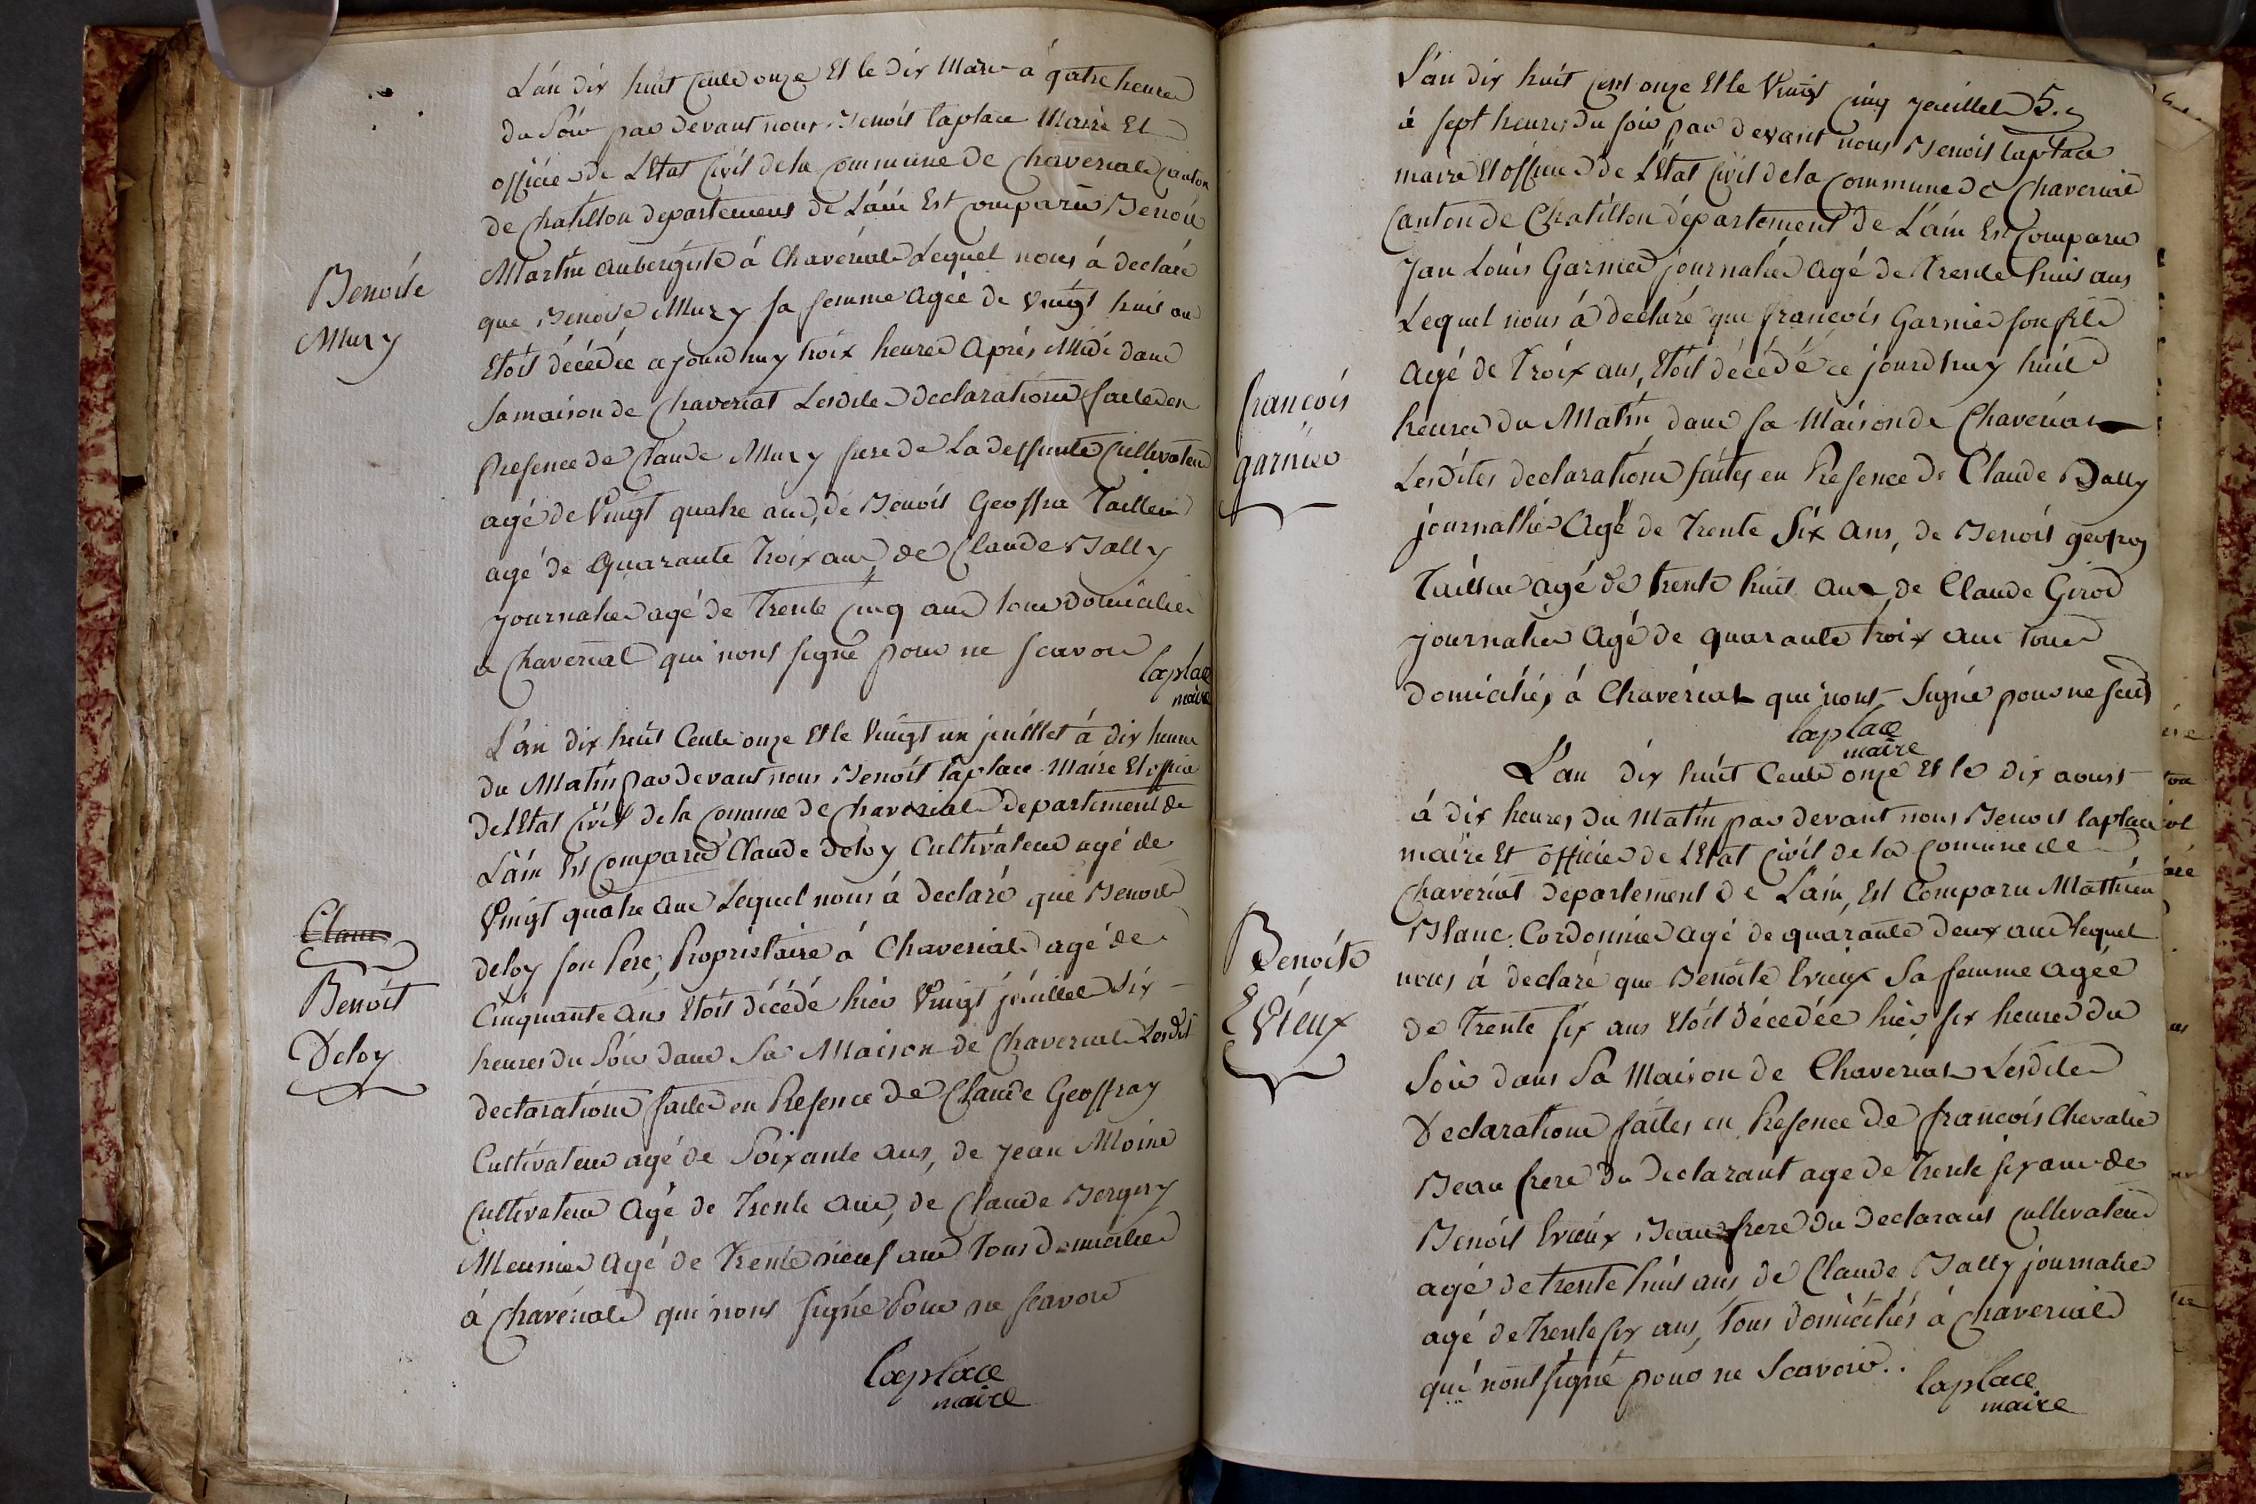 L'an dix huit Cents onze Et le dix Mars à quatre heures
du Soir par devant nous Benoit laplace Maire Et
officier de L'Etat Civil de la Commune de Chaveriat Canton
de Chatillon departement de L'ain Est Comparu Benoit
Martin aubergiste à Chaveriat Lequel nous à declaré
que Benoite Mury sa femme agée de vingt huit ans
Etoit décédée ce jourdhuy troix heures après Midi dans
sa maison de Chaveriat Lesdites declarations faites en
Presence de Claude Mury frere de La deffunte Cultivateur
agé de Vingt quatre ans, de Benoit Geoffra Tailleur
agé de Quarante Troix ans, de Claude Bally
journalier agé de Trente Cinq ans tous domiciliés
a Chaveriat qui nont signé pour ne scavoir
laplace
maire
Benoite
Mury
L'an dix huit Cents onze Et le Vingt un juillet à dix heures
du Matin par devant nous Benoit laplace Maire Et officier
de L'Etat Civil de la Comune de Chaveriat departement de
L'ain Est Comparu Claude Deloy Cultivateur agé de
Vingt quatre ans Lequel nous à declaré que Benoit
deloy son Pere, Propriétaire à Chaveriat agé de
Cinquante ans Etoit décédé hier Vingt juillet Six
heures du Soir dans Sa Maison de Chaveriat Lesdit
declarations faites en Presence de Claude Geoffray
Cultivateur agé de Soixante ans, de Jean Moine
Cultivateur Agé de Trente ans, de Claude Bergery
Meunier Agé de Trente neuf ans Tous Domiciliés
à Chaveriat qui nont signé Pour ne scavoir
laplace
maire
Claude
Benoit
Deloy
L'an dix huit Cent onze Et le Vingt Cinq jeuillet 5.
à sept heures du soir par devant nous Benoit laplace
maire Et officier de L'Etat Civil de la Commune de Chaveriat
Canton de Chatillon département de L'ain Est Comparu
Jan Louis Garnier journalier agé de Trente huit ans
Lequel nous à declaré que françois Garnier son fils
Agé de Troix ans, Etoit décédé ce jourdhuy huit
heures du Matin dans sa Maison de Chaveriat
Lesdites declarations faites en Presence de Claude Bally
journallier Agé de Trente Six ans, de Benoit geofroy
Tailleur agé de trente huit ans, de Claude Girod
journalier Agé de quarante troix ans tous
domiciliés à Chaveriat qui nont Signé pour ne scav
laplace
maire
françois
garnier
L'an dix huit Cents onze Et le dix aoust
à dix heures du Matin par devant nous Benoit laplace
maire Et officier de L'Etat Civil de la Comune de
Chaveriat departement de L'ain, Est Comparu Mathieu
Blanc Cordonnier agé de quarante deux ans lequel
nous à declaré que Benoite Evieux Sa femme agée
de Trente six ans Etoit décedée hier six heures du
Soir dans Sa Maison de Chaveriat Lesdites
Declarations faites en Presence de françois Chevalier
Beau frere du Declarant age de Trente six ans de
Benoit Evieux Beau frere du Declarant Cultivateur
agé de trente huit ans, de Claude Bally journalier
agé de Trente six ans, tous domiciliés à Chaveriat
qui nont signé pour ne Scavoir.
laplace
maire
Benoite
Evieux